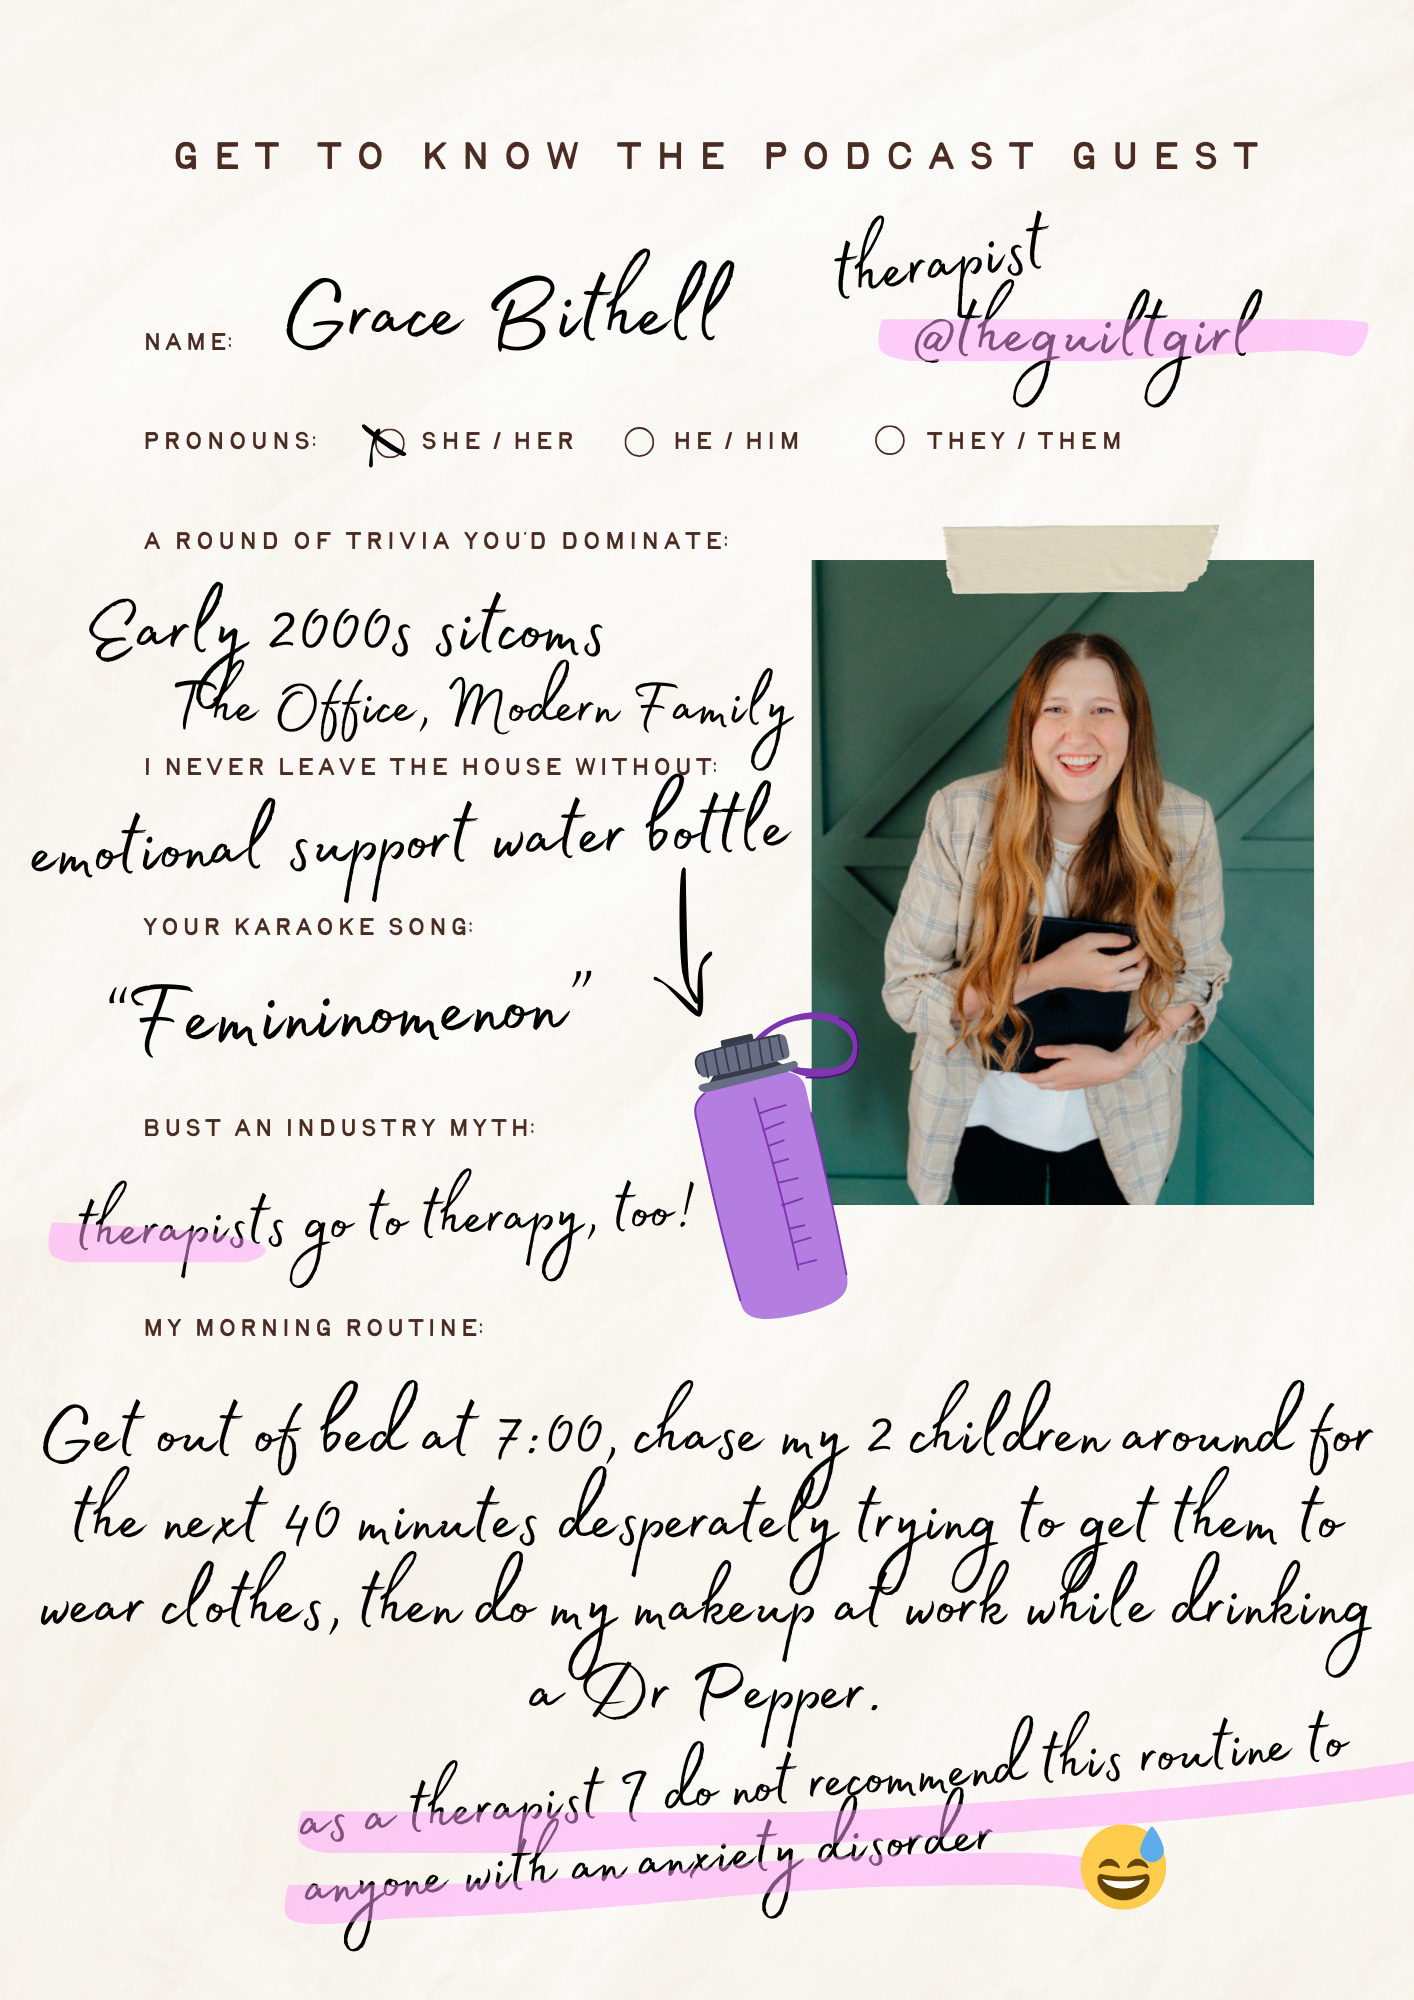 GET TO KNOW THE PODCAST GUEST
therapist
NAME: Grace Bithell
@theguiltgirl
PRONOUNS: SHE / HER HE / HIM THEY / THEM
A ROUND OF TRIVIA YOU'D DOMINATE:
Early 2000s sitcoms
The Office, Modern Family
I NEVER LEAVE THE HOUSE WITHOUT:
emotional support water bottle
YOUR KARAOKE SONG:
“Femininomenon”
BUST AN INDUSTRY MYTH:
therapists go to therapy, too!
MY MORNING ROUTINE:
Get out of bed at 7:00, chase my 2 children around for
the next 40 minutes desperately trying to get them to
wear clothes, then do my makeup at work while drinking
a Dr Pepper.
as a therapist I do not recommend this routine to
anyone with an anxiety disorder